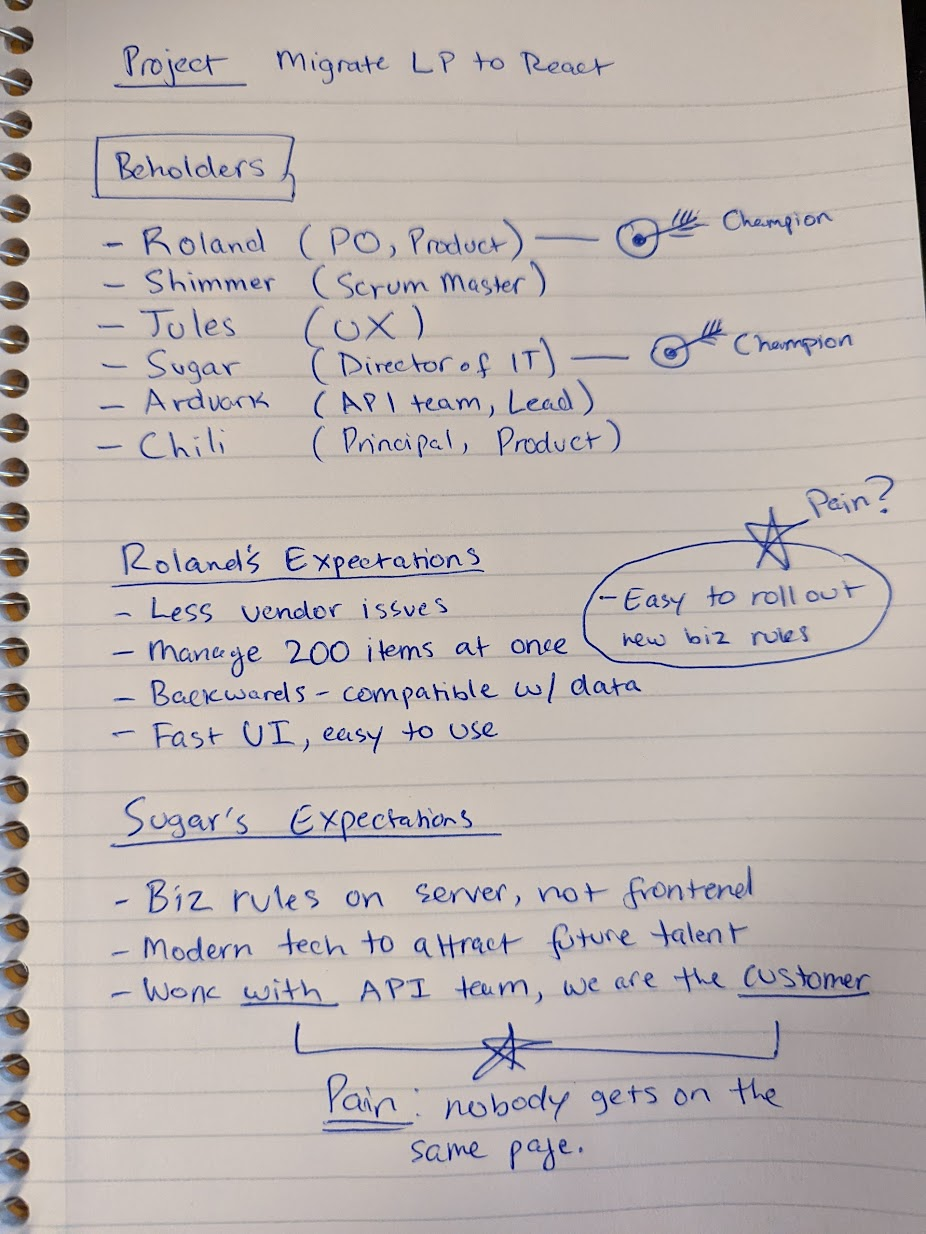 Project Migrate LP to React
Beholders
- Roland (PO, Product) — Champion
- Shimmer (Scrum Master)
- Jules (UX)
- Sugar (Director of IT) — Champion
- Arduark (API team, Lead)
- Chili (Principal, Product)
Pain?
Roland's Expectations
- Easy to roll out
new biz rules
- Less vendor issues
- Manage 200 items at once
- Backwards-compatible w/ data
- Fast UI, easy to use
Sugar's Expectations
- Biz rules on server, not frontend
- Modern tech to attract future talent
- Work with API team, we are the customer
Pain: nobody gets on the
same page.